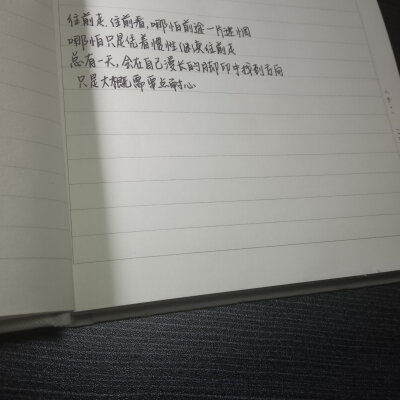 往前走,往前看,哪怕前途一片迷惘
哪怕只是凭着惯性继续往前走
总有一天,会在自己漫长的脚印中找到方向
只是大概需要点耐心